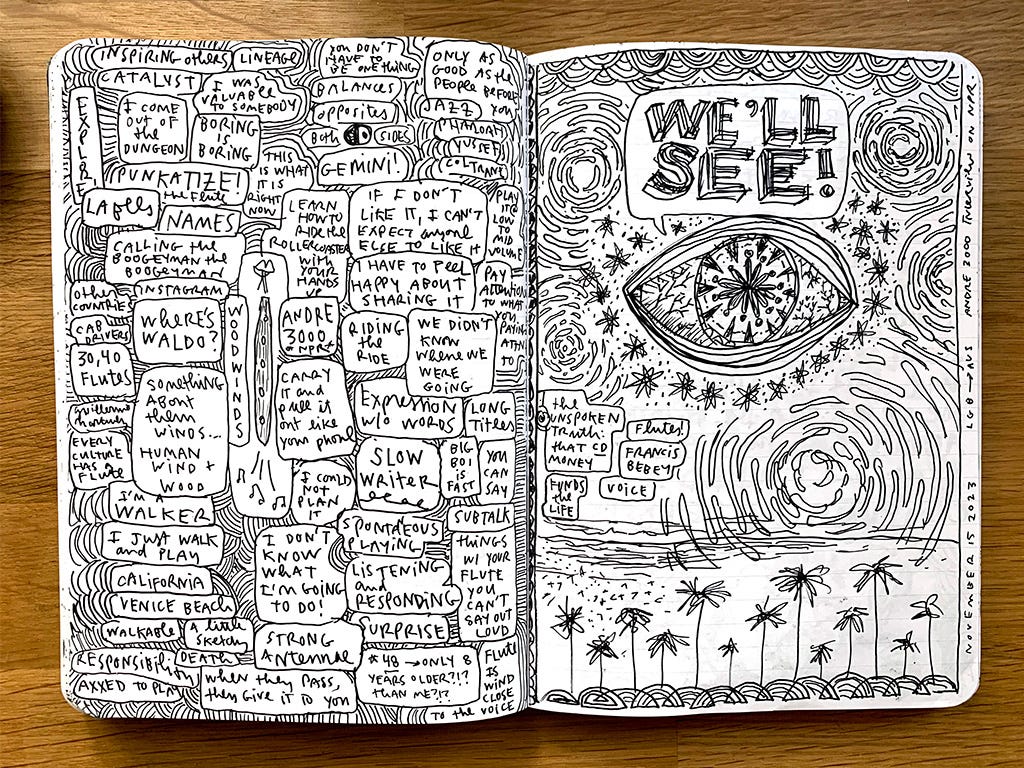 INSPIRING OTHERS
LINEAGE
CATALYST
I WAS
VALUABLE
TO SOMEBODY
YOU DON'T
HAVE TO
BE ONE THING
ONLY AS
GOOD AS the
PEOPLE BEFORE
YOU
EXPLORE
I COME
OUT OF
the
DUNGEON
BORING
IS
BORING
BALANCES
OPPOSITES
Both
SIDES
GEMINI!
JAZZ
PHAROAH
YUSEF
COLTRANE
PUNKATIZE!
the FLUTE
THIS
IS WHAT
IT IS
RIGHT
NOW
LABELS
NAMES
LEARN
HOW TO
RIDE the
ROLLERCOASTER
WITH
YOUR
HANDS
UP
IF I DON'T
LIKE IT, I CAN'T
EXPECT anyone
ELSE TO LIKE IT
PLAY
IT @
LOW
TO
MID
VOLUME
CALLING the
BOOGEYMAN the
BOOGEYMAN
INSTAGRAM
I HAVE TO FEEL
HAPPY ABOUT
SHARING IT
PAY
ATTENTION
TO WHAT
YOU
PAYING
ATTN
TO
OTHER
COUNTRIES
CAB
DRIVERS
30,40
FLUTES
WHERE'S
WALDO?
WOODWINDS
ANDRE
3000
on NPR
RIDING
the
RIDE
WE DIDN'T
KNOW
where WE
WERE
GOING
Guillermo
EVERY
CULTURE
HAS A
FLUTE
SOMEthING
ABOUT
them
WINDS...
HUMAN
WIND +
WOOD
CARRY
IT and
pull it
out like
your phone
EXPRESSION
W/O WORDS
LONG
TITLES
SLOW
WRITER
BIG
BOI
IS
FAST
YOU
CAN
SAY
I'M A
WALKER
I COULD
NOT
PLAN
IT
SPONTANEOUS
PLAYING
SUBTALK
I JUST WALK
and PLAY
I DON'T
KNOW
WHAT
I'M GOING
TO DO!
LISTENING
and
RESPONDING
THINGS
W/ YOUR
FLUTE
YOU
CAN'T
SAY OUT
LOUD
CALIFORNIA
VENICE BEACH
WALKABLE
A little
SKETCH
STRONG
ANTENNAE
SURPRISE
RESPONSIBILITY
DEATH
AXXED TO PLAY
when they PASS,
they GIVE IT TO YOU
* 48 → ONLY 8
YEARS OLDER?!?
THAN ME?!?
FLUTE
IS
WIND
CLOSE
TO the VOICE
WE'LL
SEE!
the
UNSPOKEN
TRUTH:
THAT CD
MONEY
FUNDS
the
LIFE
FLUTES!
FRANCIS
BEBEY
VOICE
NOVEMBER 15 2023 LGB → AUS ANDRE 3000 Interview ON NPR